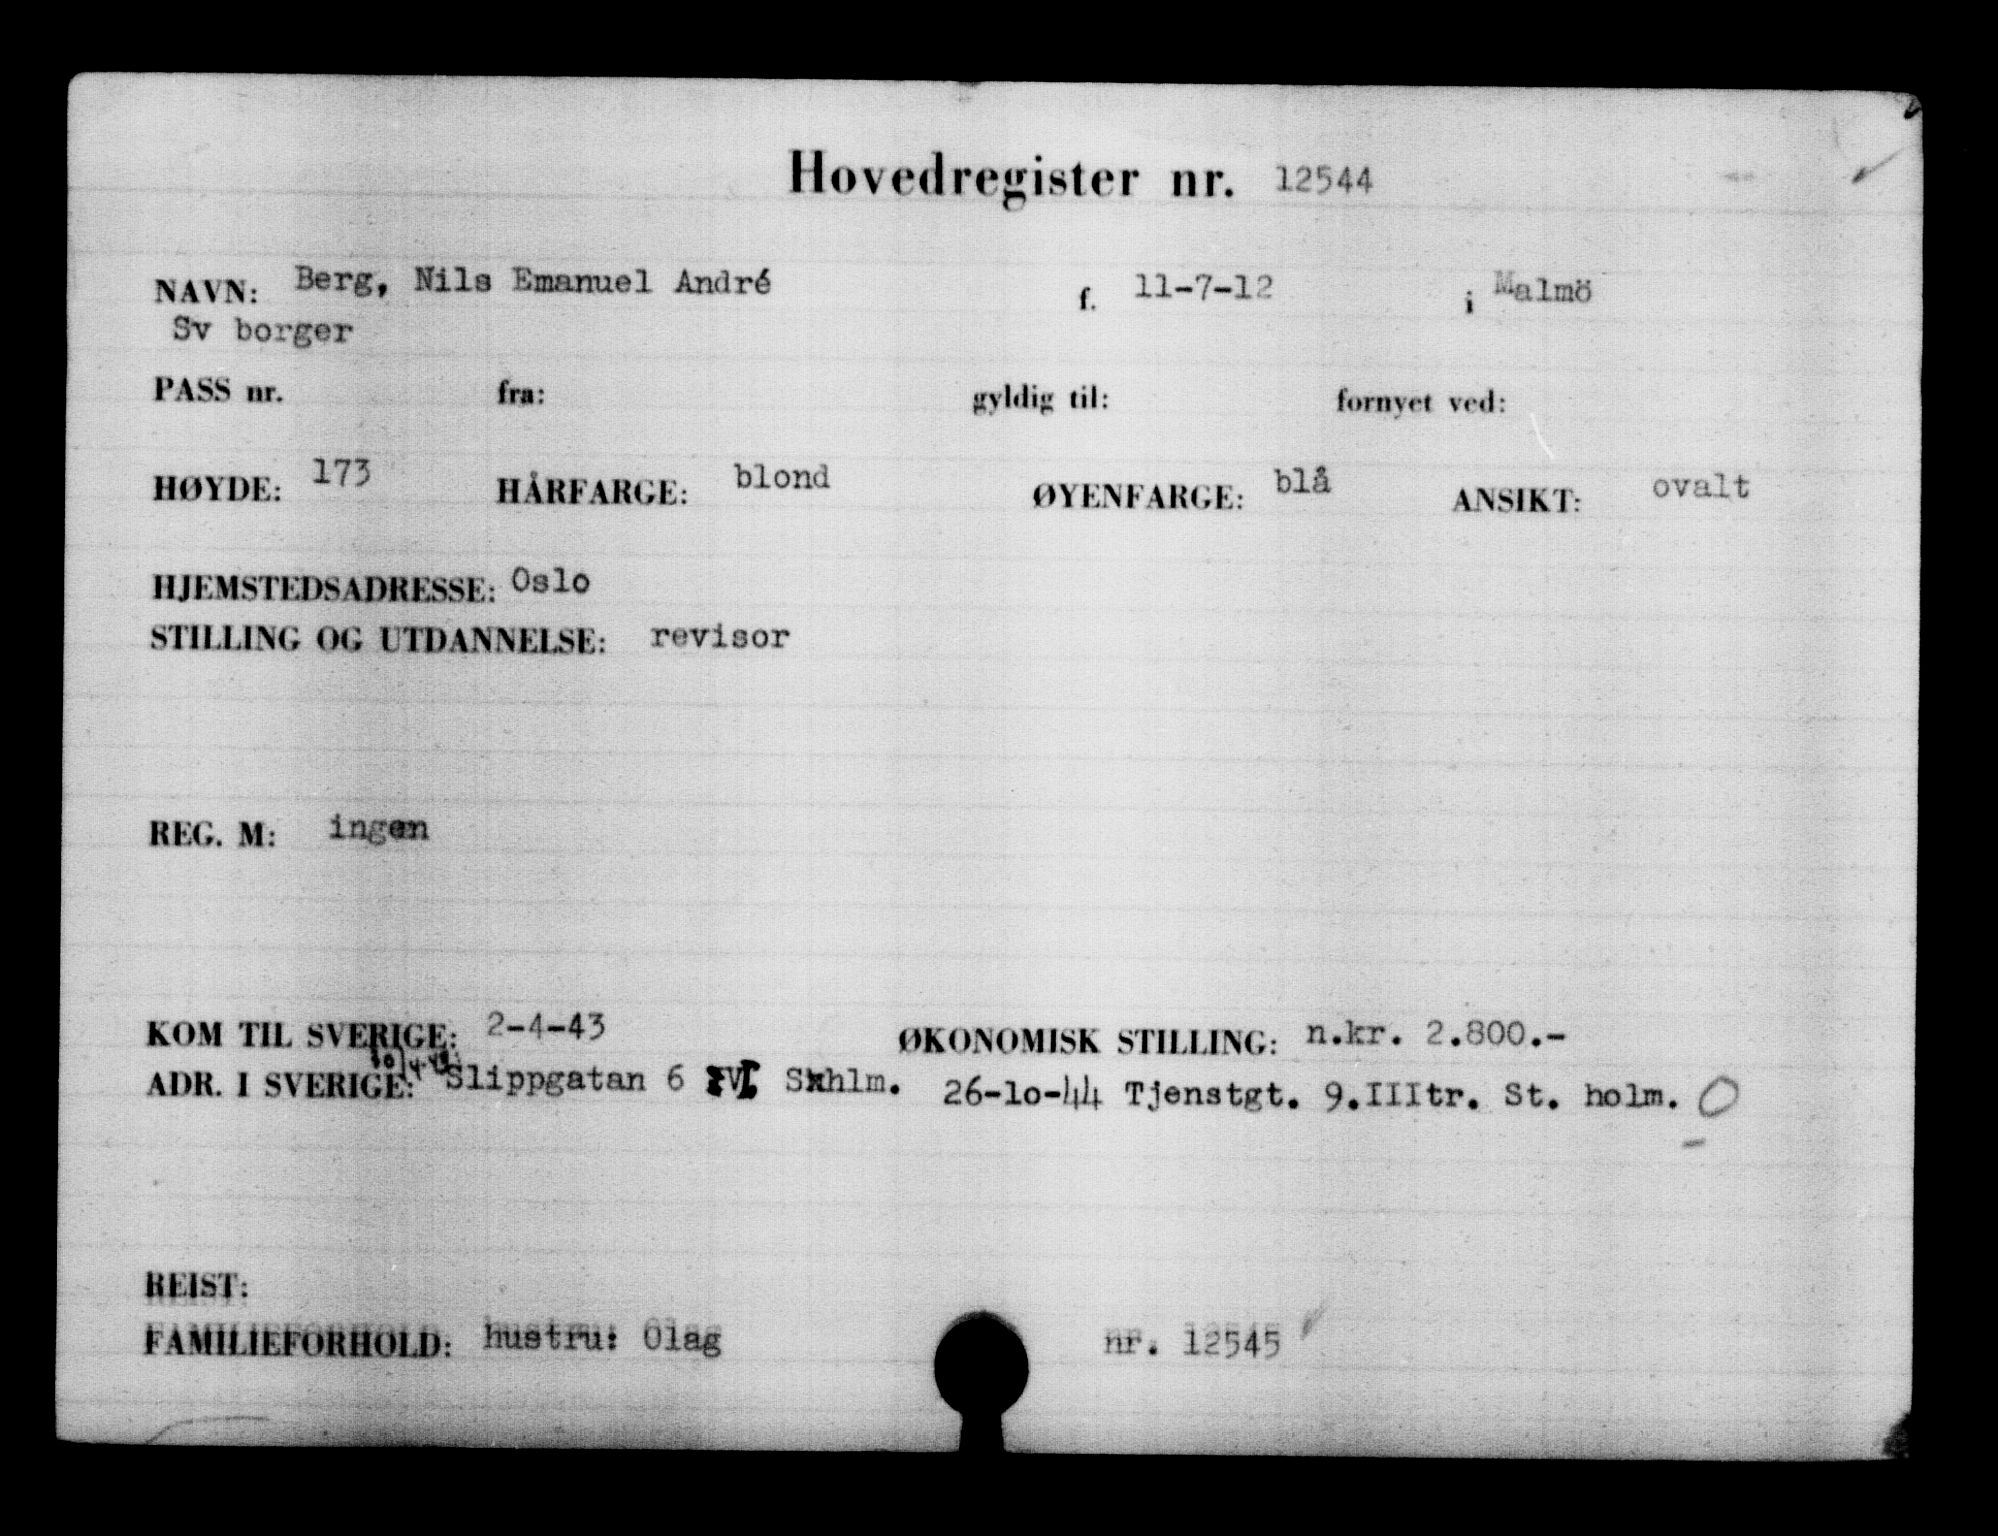 Hovedregister nr. 12544
NAVN: Berg, Nils Emanuel André f. 11-7-12 i Malmö
Sv borger
PASS nr. fra: gyldig til: fornyet ved:
HØYDE: 173 HÅRFARGE: blond ØYENFARGE: blå ANSIKT: ovalt
HJEMSTEDSADRESSE: Oslo
STILLING OG UTDANNELSE: revisor
REG. M: ingen
KOM TIL SVERIGE: 2-4-43 ØKONOMISK STILLING: n.kr. 2.800.-
ADR. I SVERIGE: Slippgatan 6 Sthlm. 26-10-44 Tjenstgt. 9.IIItr. St. holm.
REIST:
FAMILIEFORHOLD: hustru: Olag nr. 12545